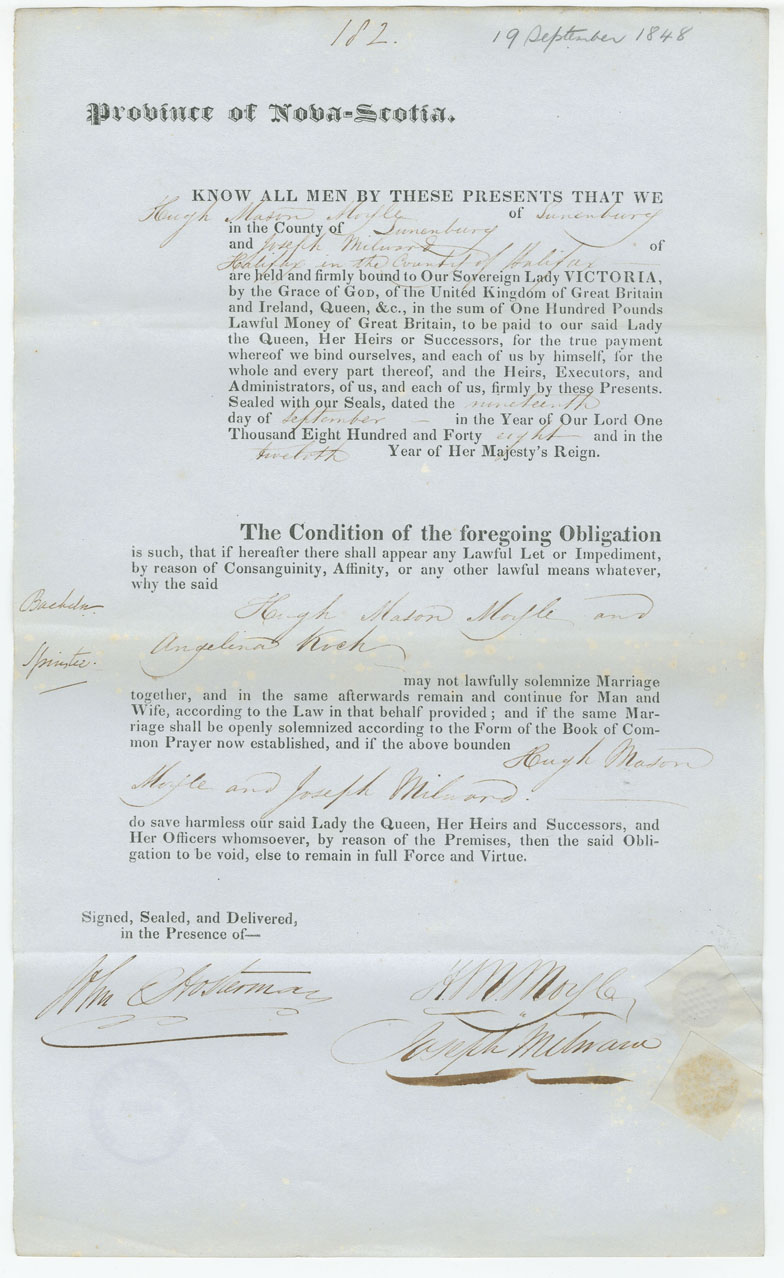 182.
19 September 1848
Province of Nova-Scotia.
KNOW ALL MEN BY THESE PRESENTS THAT WE
Hugh Mason Moyle of Lunenburg
in the County of Lunenburg
and Joseph Milward of
Halifax in the County of Halifax
are held and firmly bound to Our Sovereign Lady VICTORIA,
by the Grace of GOD, of the United Kingdom of Great Britain
and Ireland, Queen, &c., in the sum of One Hundred Pounds
Lawful Money of Great Britain, to be paid to our said Lady
the Queen, Her Heirs or Successors, for the true payment
whereof we bind ourselves, and each of us by himself, for the
whole and every part thereof, and the Heirs, Executors, and
Administrators, of us, and each of us, firmly by these Presents.
Sealed with our Seals, dated the nineteenth
day of September in the Year of Our Lord One
Thousand Eight Hundred and Forty eight and in the
twelvth Year of Her Majesty's Reign.
The Condition of the foregoing Obligation
is such, that if hereafter there shall appear any Lawful Let or Impediment,
by reason of Consanguinity, Affinity, or any other lawful means whatever,
why the said
Bachelor Hugh Mason Moyle and
Spinster. Angelina Koch
may not lawfully solemnize Marriage
together, and in the same afterwards remain and continue for Man and
Wife, according to the Law in that behalf provided; and if the same Mar-
riage shall be openly solemnized according to the Form of the Book of Com-
mon Prayer now established, and if the above bounden
Hugh Mason
Moyle and Joseph Milward.
do save harmless our said Lady the Queen, Her Heirs and Successors, and
Her Officers whomsoever, by reason of the Premises, then the said Obli-
gation to be void, else to remain in full Force and Virtue.
Signed, Sealed, and Delivered,
in the Presence of—
John
H M Moyle
Joseph Milward